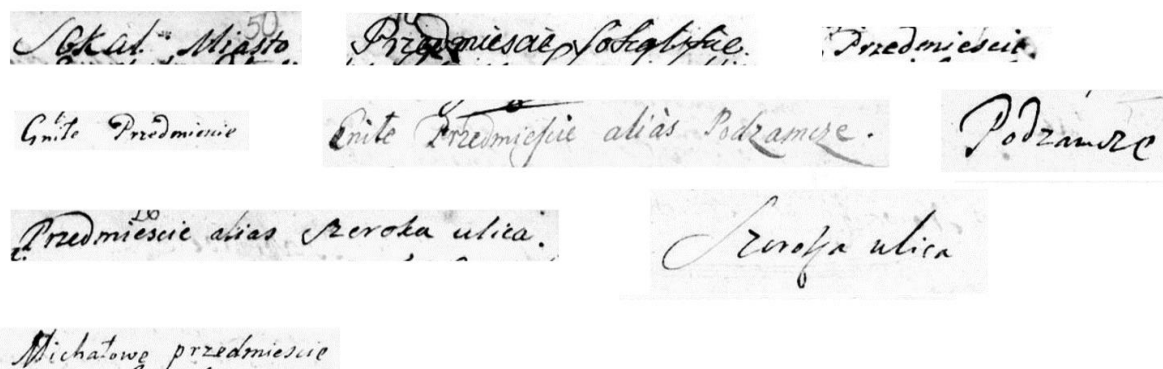 Sokal Miasto 50
Przedmiescie Sokalskie
Przedmieście
Gniłe Przedmieście
Gniłe Przedmieście alias Podzamcze.
Podzamcze
Przedmieście alias Szeroka ulica.
Szeroka ulica
Michałowe przedmieście